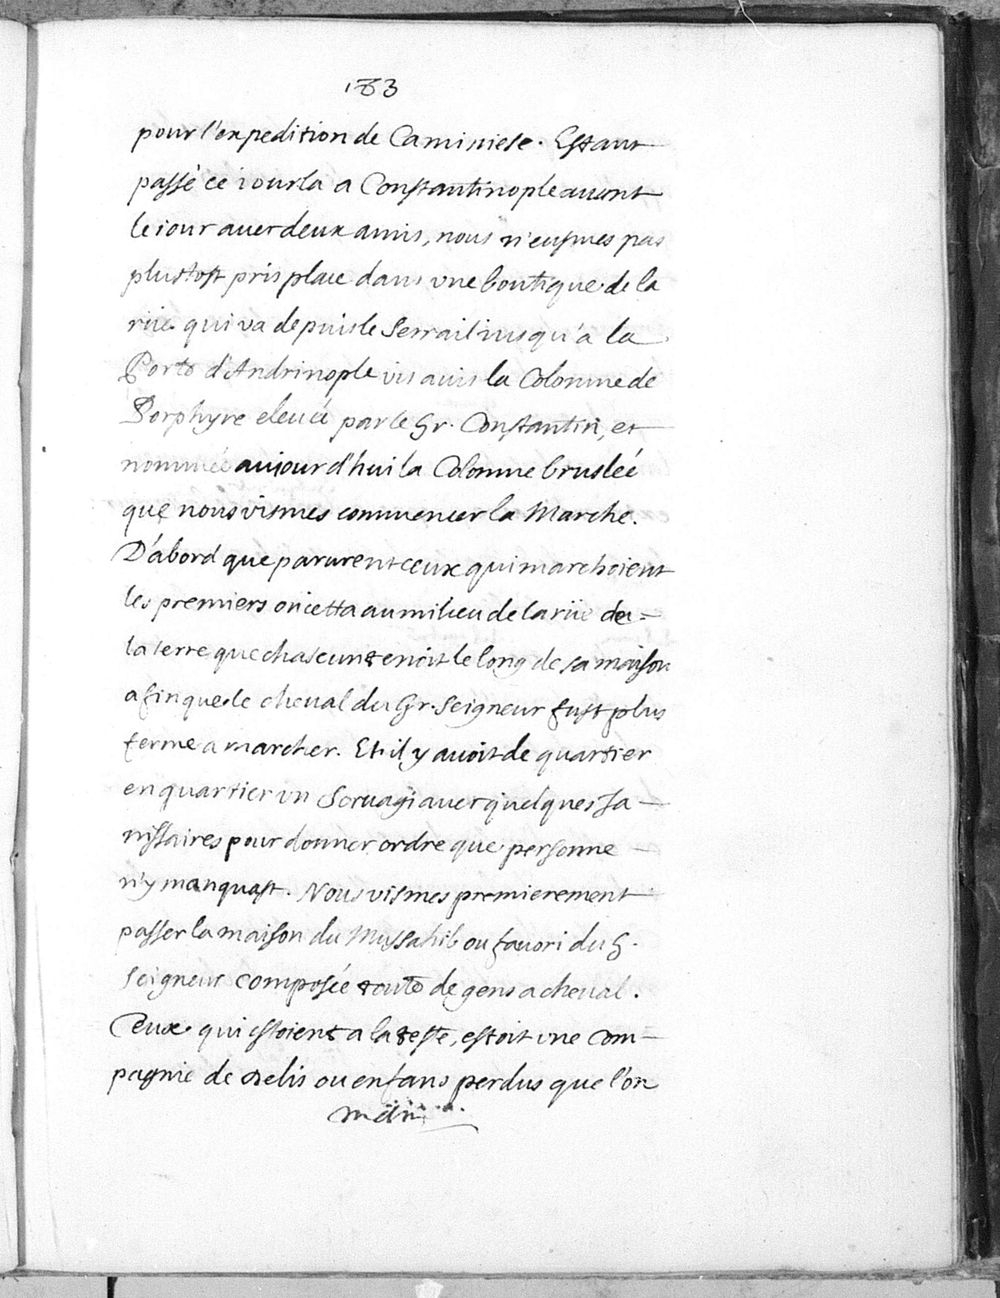 183
pour l'expedition de Caminiese. Estant
passé ce iour la a Constantinople auant
le iour auec deux amis, nous n'eusmes pas
plustost pris place dans vne boutique de la
rüe qui va depuis le Serrail iusqu'a la
Porte d'Andrinople vis a vis la Colomne de
Porphyre eleueé par le Gr. Constantin, et
nommeé aujourd'hui la Colomne brusleé
que nous vismes commencer la Marche.
D'abord que parurent ceux qui marchoient
les premiers on ietta au milieu de la rüe de
la terre que chascun tenoit le long de sa maison
afin que le cheval du Gr. Seigneur fust plus
ferme a marcher. Et il y auoit de quartier
en quartier vn Soruagi auec quelques Ja-
nissaires pour donner ordre que personne
n'y manquast. Nous vismes premierement
passer la maison du Mussahib ou fauori du G.
Seigneur composée toute de gens a cheual.
Ceux qui estoient a la teste, estoit vne Com-
pagnie de Delis ou enfans perdus que l'on